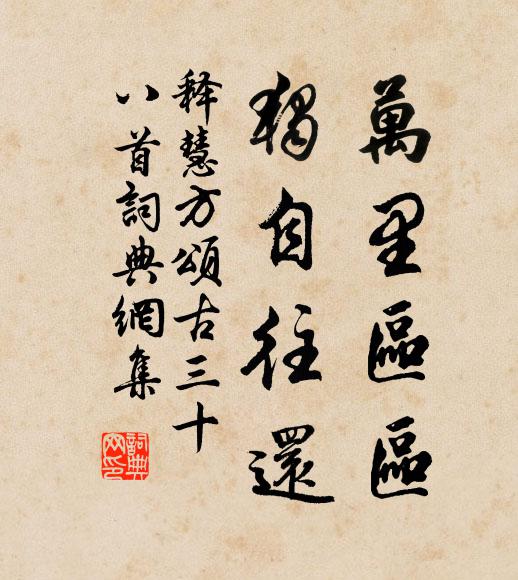 萬里區區
獨自往還
釋慧方頌古三十
八首詞典網集
詞典
网印